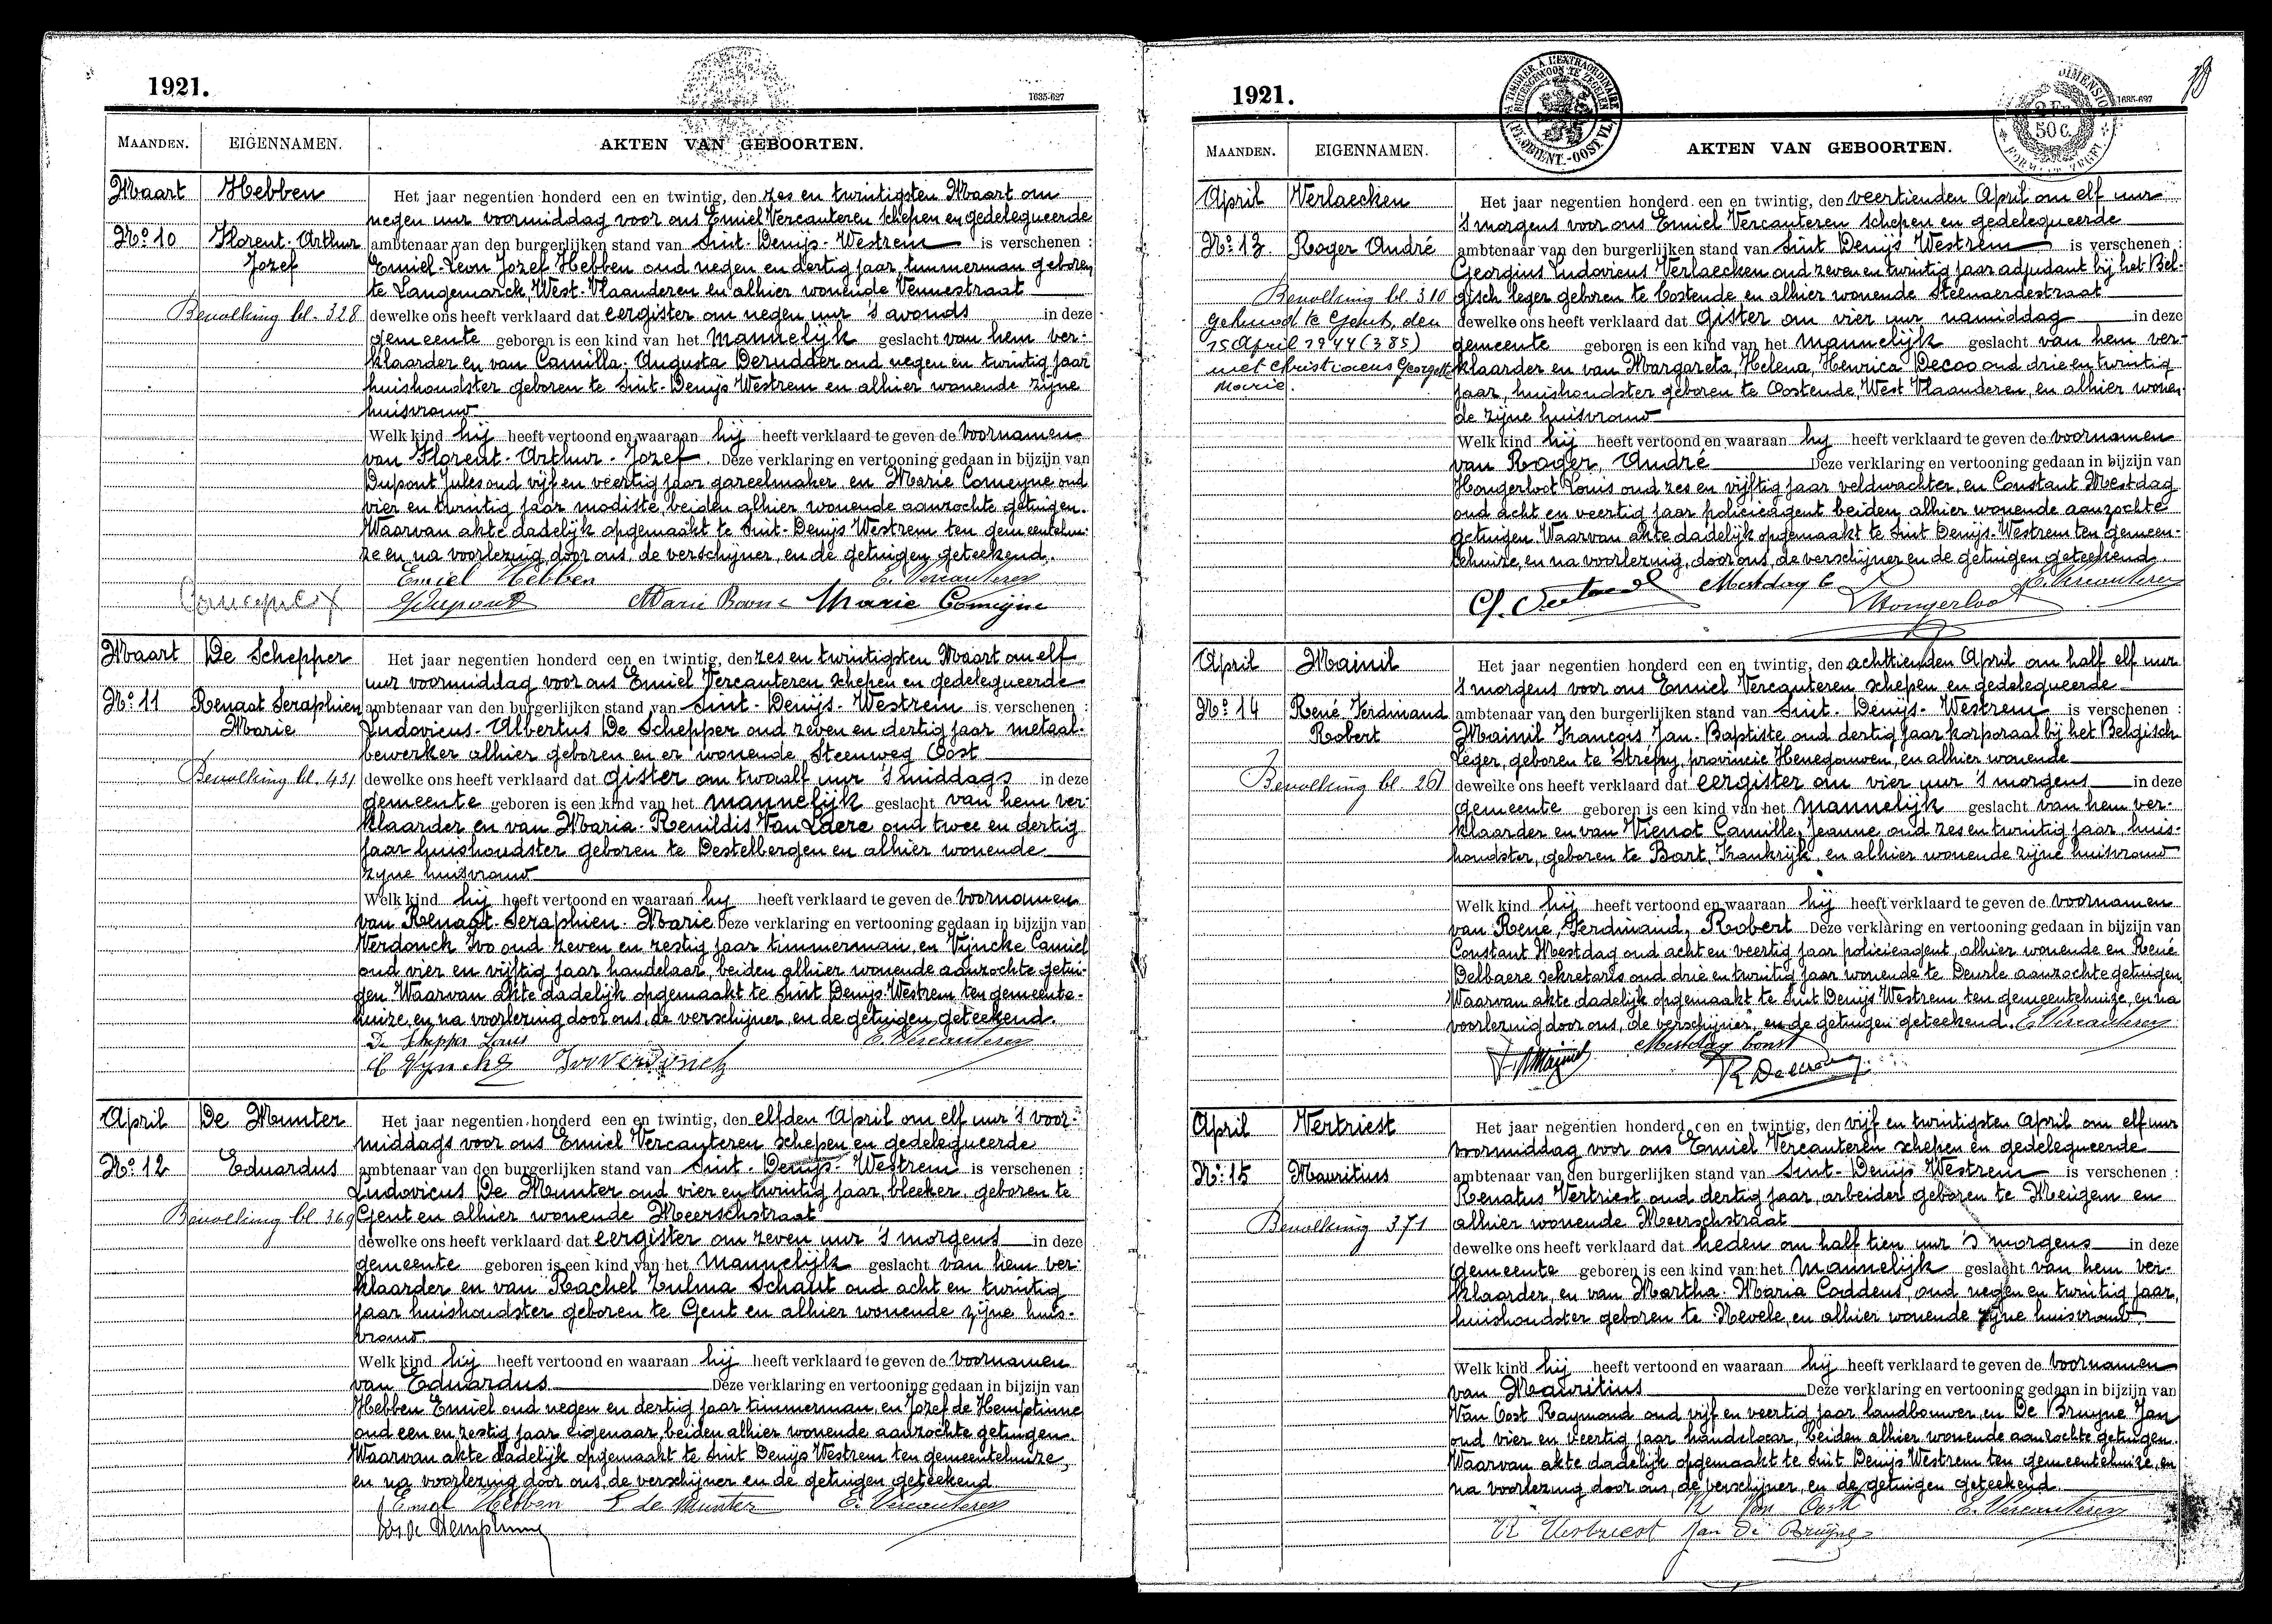 1921.
1635-627
MAANDEN.
EIGENNAMEN.
AKTEN VAN GEBOORTEN.
Maart
Hebben
No 10
Florent-Arthur
Jozef
Bevolking bl. 328
Het jaar negentien honderd een en twintig, den zes en twintigsten Maart om
negen uur voormiddag voor ons Emiel Vercauteren schepen en gedelegueerde
ambtenaar van den burgerlijken stand van Sint-Denijs-Westrem is verschenen :
Emiel-Leon Jozef Hebben oud negen en dertig jaar, timmerman geboren
te Langemarck, West-Vlaanderen en alhier wonende Vennestraat
dewelke ons heeft verklaard dat eergister om negen uur 's avonds in deze
gemeente geboren is een kind van het mannelijk geslacht van hem ver-
klaarder en van Camilla-Augusta Derudder oud negen en twintig jaar
huishoudster geboren te Sint-Denijs Westrem en alhier wonende zijne
huisvrouw
Welk kind hij heeft vertoond en waaraan hij heeft verklaard te geven de voornamen
van Florent-Arthur-Jozef. Deze verklaring en vertooning gedaan in bijzijn van
Dupont Jules oud vijf en veertig jaar gareelmaker en Marie Comeyne oud
vier en twintig jaar modiste, beiden alhier wonende aanzochte getuigen.
Waarvan akte dadelijk opgemaakt te Sint-Denijs Westrem ten gemeentehui-
ze en na voorlezing door ons, de verschijner, en de getuigen geteekend.
Emiel Hebben E. Vercauteren
J Dupont Marie Boone Marie Comeyne
Maart
De Schepper
No 11
Renaat Seraphien
Marie
Bevolking bl. 431
Het jaar negentien honderd een en twintig, den zes en twintigsten Maart om elf
uur voormiddag voor ons Emiel Vercauteren schepen en gedelegueerde
ambtenaar van den burgerlijken stand van Sint-Denijs-Westrem is verschenen :
Ludovicus-Albertus De Schepper oud zeven en dertig jaar metaal-
bewerker alhier geboren en er wonende Steenweg Oost
dewelke ons heeft verklaard dat gister om twaalf uur 's middags in deze
gemeente geboren is een kind van het mannelijk geslacht van hem ver-
klaarder en van Maria-Renildis Van Laere oud twee en dertig
jaar huishoudster geboren te Destelbergen en alhier wonende
zijne huisvrouw
Welk kind hij heeft vertoond en waaraan hy heeft verklaard te geven de voornamen
van Renaat-Seraphien-Marie Deze verklaring en vertooning gedaan in bijzijn van
Verdonck Ivo oud zeven en zestig jaar timmerman, en Vyncke Camiel
oud vier en vijftig jaar handelaar, beiden alhier wonende aanzochte getui-
gen. Waarvan akte dadelijk opgemaakt te Sint Denijs-Westrem ten gemeente-
huize, en na voorlezing door ons, de verschijner, en de getuigen geteekend.
De Schepper Louis E. Vercauteren
C Vyncke Ivo Verdonck
April
De Munter
No 12
Eduardus
Bevolking bl. 369
Het jaar negentien honderd een en twintig, den elfden April om elf uur 's voor-
middags voor ons Emiel Vercauteren schepen en gedelegueerde
ambtenaar van den burgerlijken stand van Sint-Denijs-Westrem is verschenen :
Ludovicus De Munter oud vier en twintig jaar, bleeker geboren te
Gent en alhier wonende Meerschstraat
dewelke ons heeft verklaard dat eergister om zeven uur 's morgens in deze
gemeente geboren is een kind van het mannelijk geslacht van hem ver-
klaarder en van Rachel Zulma Schaut oud acht en twintig
jaar huishoudster geboren te Gent en alhier wonende zijne huis-
vrouw.
Welk kind hij heeft vertoond en waaraan hij heeft verklaard te geven de voornamen
van Eduardus Deze verklaring en vertooning gedaan in bijzijn van
Hebben Emiel oud negen en dertig jaar timmerman, en Jozef de Hemptinne
oud een en zestig jaar eigenaar, beiden alhier wonende aanzochte getuigen.
Waarvan akte dadelijk opgemaakt te Sint Denijs Westrem ten gemeentehuize,
en na voorlezing door ons, de verschijner en de getuigen geteekend.
Emiel Hebben L de Munter E. Vercauteren
de Hemptinne
1921.
TIMBRER A L'EXTRAORDINAIRE
BUITENGEWOON TE ZEGELEN
2 Fr.
50 C.
1635-627
MAANDEN.
EIGENNAMEN.
AKTEN VAN GEBOORTEN.
April
Verlaecken
No 13.
Roger André
Bevolking bl. 310
gehuwd te Gent, den
15 April 1944 (385)
met Christiaens Georgette
Marie.
Het jaar negentien honderd een en twintig, den veertienden April om elf uur
's morgens voor ons Emiel Vercauteren schepen en gedelegueerde
ambtenaar van den burgerlijken stand van Sint Denijs Westrem is verschenen :
Georgius Ludovicus Verlaecken oud zeven en twintig jaar adjudant bij het Bel-
gisch leger geboren te Oostende en alhier wonende Steenaerdestraat
dewelke ons heeft verklaard dat gister om vier uur namiddag in deze
gemeente geboren is een kind van het mannelijk geslacht van hem ver-
klaarder en van Margareta, Helena, Henrica Decoo oud drie en twintig
jaar, huishoudster geboren te Oostende, West Vlaanderen, en alhier wonen-
de zijne huisvrouw
Welk kind hij heeft vertoond en waaraan hy heeft verklaard te geven de voornamen
van Roger, André Deze verklaring en vertooning gedaan in bijzijn van
Hongerloot Louis oud zes en vijftig jaar veldwachter, en Constant Mestdag
oud acht en veertig jaar policieagent beiden alhier wonende aanzochte
getuigen. Waarvan akte dadelijk opgemaakt te Sint Denijs-Westrem ten gemeen-
tehuize, en na voorlezing, door ons, de verschijner en de getuigen geteekend.
Mestdag C E. Vercauteren
L Hongerloot
April
Mainil
No 14
René Ferdinand
Robert
Bevolking bl. 261
Het jaar negentien honderd een en twintig, den achttienden April om half elf uur
's morgens voor ons Emiel Vercauteren schepen en gedelegueerde
ambtenaar van den burgerlijken stand van Sint-Denijs-Westrem is verschenen :
Mainil François Jan-Baptiste oud dertig jaar korporaal bij het Belgisch
Leger, geboren te Strépy, provincie Henegouwen, en alhier wonende
dewelke ons heeft verklaard dat eergister om vier uur 's morgens in deze
gemeente geboren is een kind van het mannelijk geslacht van hem ver-
klaarder en van Vienot Camille, Jeanne oud zes en twintig jaar, huis-
houdster, geboren te Bart, Frankrijk, en alhier wonende zijne huisvrouw
Welk kind hij heeft vertoond en waaraan hij heeft verklaard te geven de voornamen
van René, Ferdinand, Robert Deze verklaring en vertooning gedaan in bijzijn van
Constant Mestdag oud acht en veertig jaar policieagent, alhier wonende en René
Delbaere sekretaris oud drie en twintig jaar wonende te Deurle aanzochte getuigen.
Waarvan akte dadelijk opgemaakt te Sint Denijs Westrem ten gemeentehuize, en na
voorlezing door ons, de verschijner, en de getuigen geteekend. E. Vercauteren
Mestdag Const
April
Vertriest
No 15
Mauritius
Bevolking 371
Het jaar negentien honderd een en twintig, den vijf en twintigsten April om elf uur
voormiddag voor ons Emiel Vercauteren schepen en gedelegueerde
ambtenaar van den burgerlijken stand van Sint-Denijs Westrem is verschenen :
Renatus Vertriest oud dertig jaar, arbeider geboren te Meigem en
alhier wonende Meerschstraat
dewelke ons heeft verklaard dat heden om half tien uur 's morgens in deze
gemeente geboren is een kind van het mannelijk geslacht van hem ver-
klaarder, en van Martha-Maria Coddens, oud negen en twintig jaar,
huishoudster geboren te Nevele, en alhier wonende zijne huisvrouw.
Welk kind hij heeft vertoond en waaraan hij heeft verklaard te geven de voornamen
van Mauritius Deze verklaring en vertooning gedaan in bijzijn van
Van Oost Raymond oud vijf en veertig jaar landbouwer, en De Bruyne Jan
oud vier en veertig jaar handelaar, beiden alhier wonende aanzochte getuigen.
Waarvan akte dadelijk opgemaakt te Sint Denijs Westrem ten gemeentehuize, en
na voorlezing door ons, de verschijner, en de getuigen geteekend.
R Van Oost E. Vercauteren
R Vertriest Jan De Bruyne